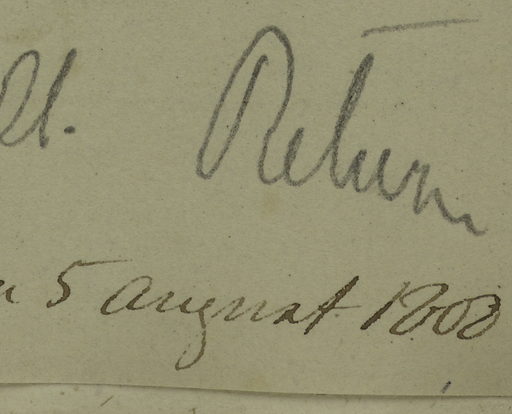 Return
5 August 1808